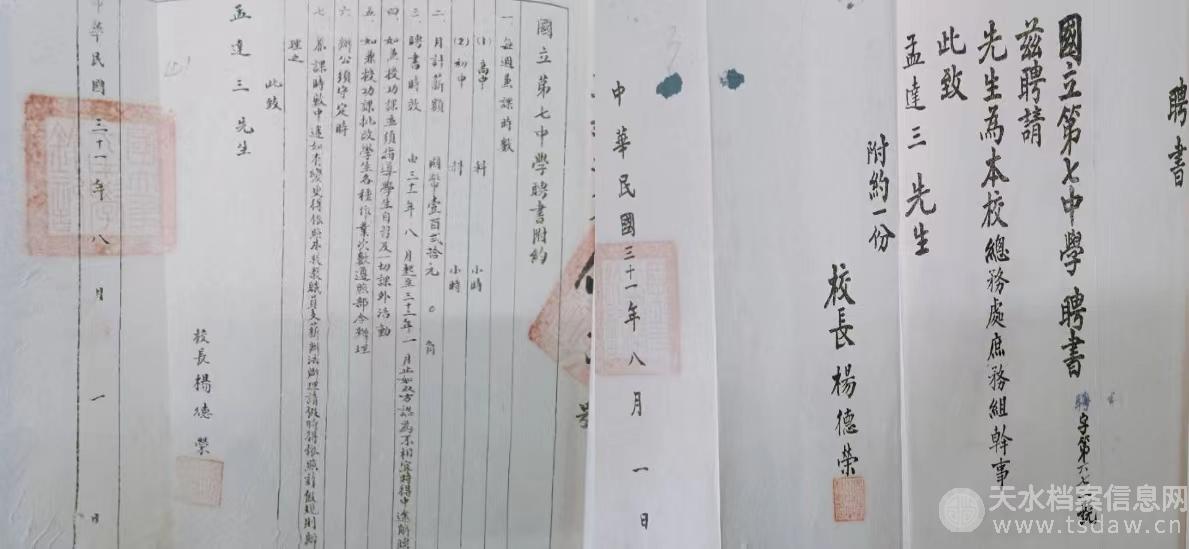 聘書
國立第七中學 聘書
聘字第六七號
兹聘請
先生為本校總務處庶務組幹事
此致
孟達三先生
附約一份
校長 楊德榮
中華民國三十一年八月一日
國立第七中學聘書附約
一 每週兼課時數
(1) 高中 科 小時
(2) 初中 科 小時
二 月計薪額 國幣壹百貳拾元
三 聘書時效 由三十一年八月起至三十二年一月止如双方認為不相宜時得中途解聘
四 如兼授功課並須指導學生自習及一切課外活動
五 如兼授功課批改學生各種作業次數遵照部令辦理
六 辦公須守定時
七 兼課時數中途如有變更得依照本校教職員支薪辦法辦理請假時得依照請假規則辦
理之
此致
孟達三先生
校長楊德榮
中華民國三十一年八月一日
天水档案信息网
www.tsdaw.cn